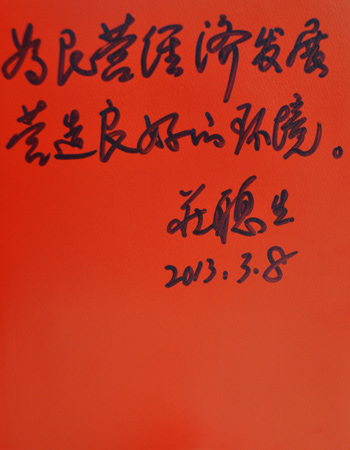 为民营经济发展
营造良好的环境。
庄聪生
2013.3.8